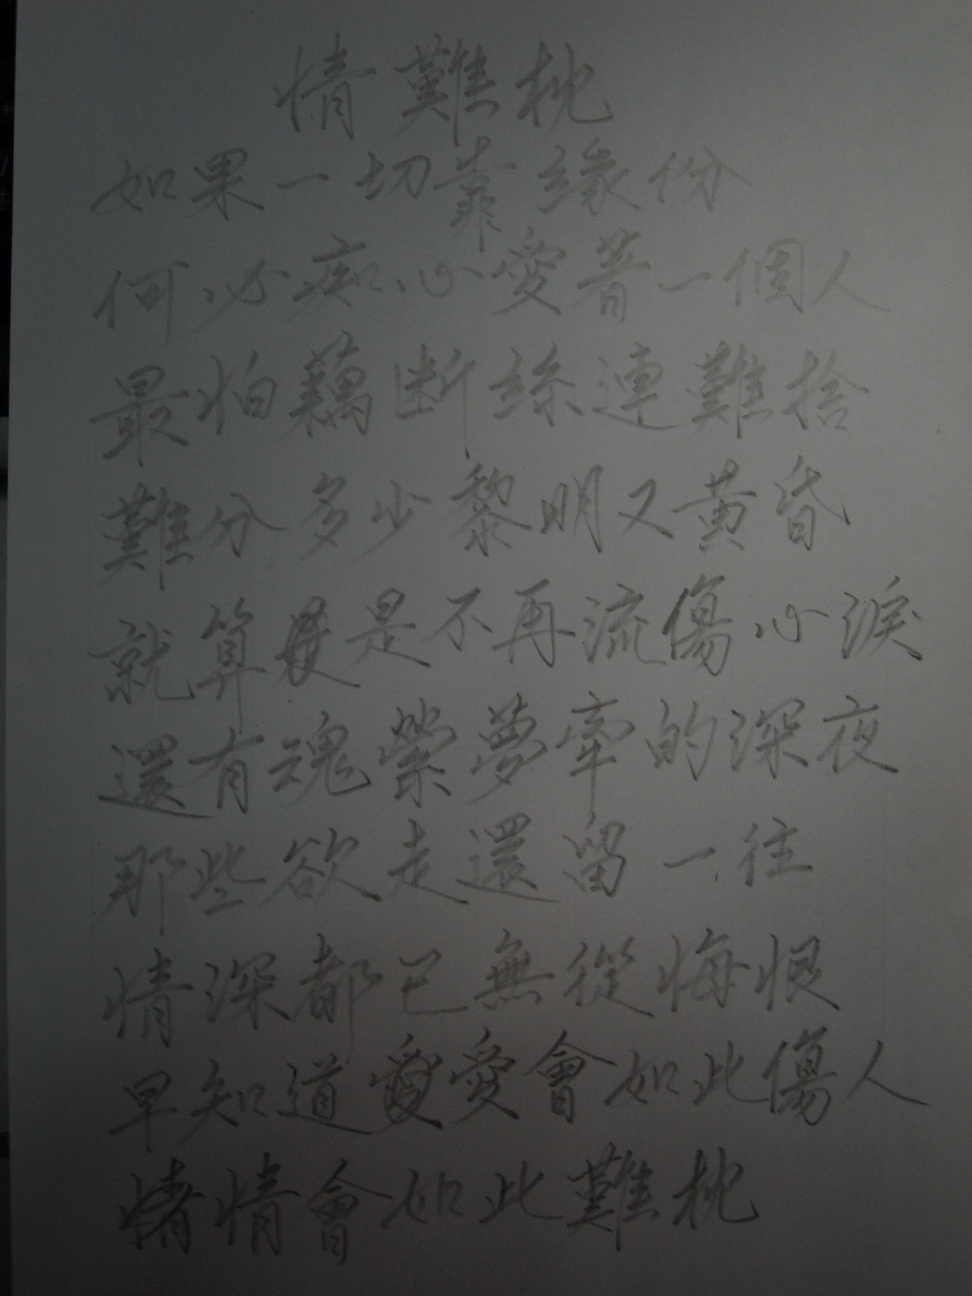 情難枕
如果一切靠緣份
何必痴心愛著一個人
最怕藕斷絲連難捨
難分多少黎明又黃昏
就算是不再流傷心淚
還有魂縈夢牽的深夜
那些欲走還留一往
情深都已無從悔恨
早知道愛愛會如此傷人
情情會如此難枕